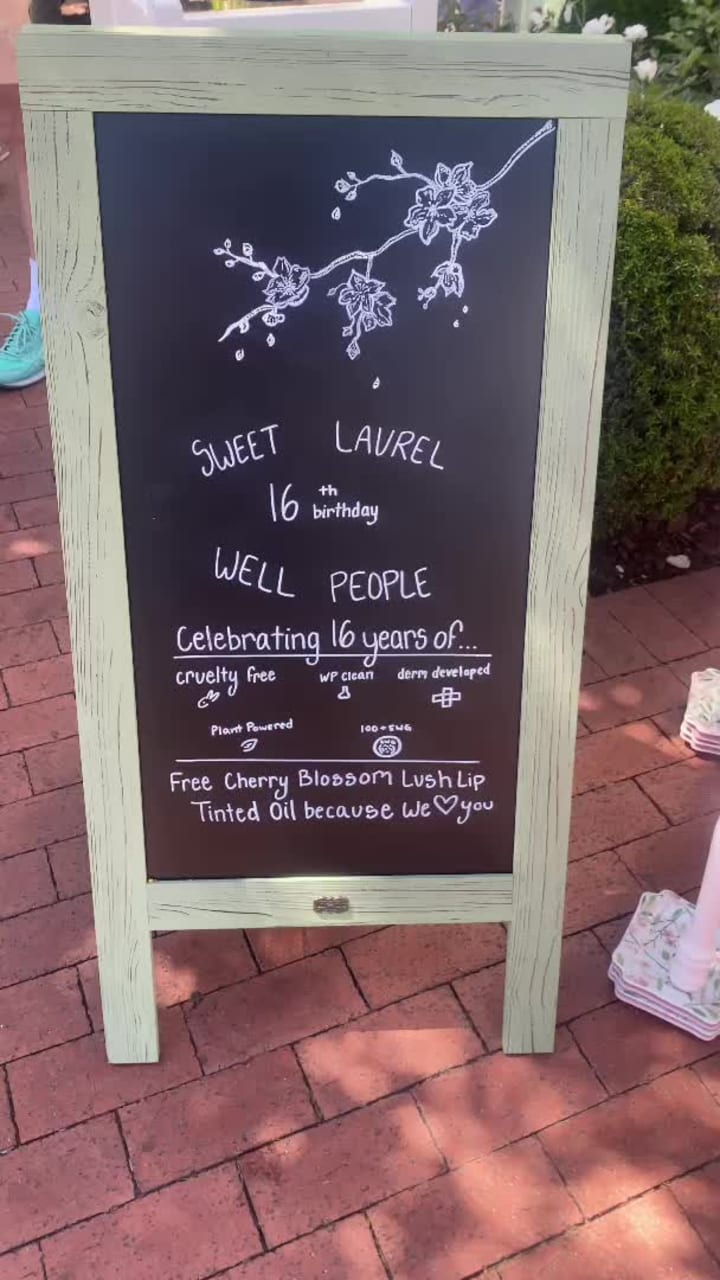 SWEET LAUREL
16th birthday
WELL PEOPLE
Celebrating 16 years of...
cruelty free WP clean derm developed
Plant Powered 100+ EWG
Free Cherry Blossom Lush Lip
Tinted Oil because we ♡ you